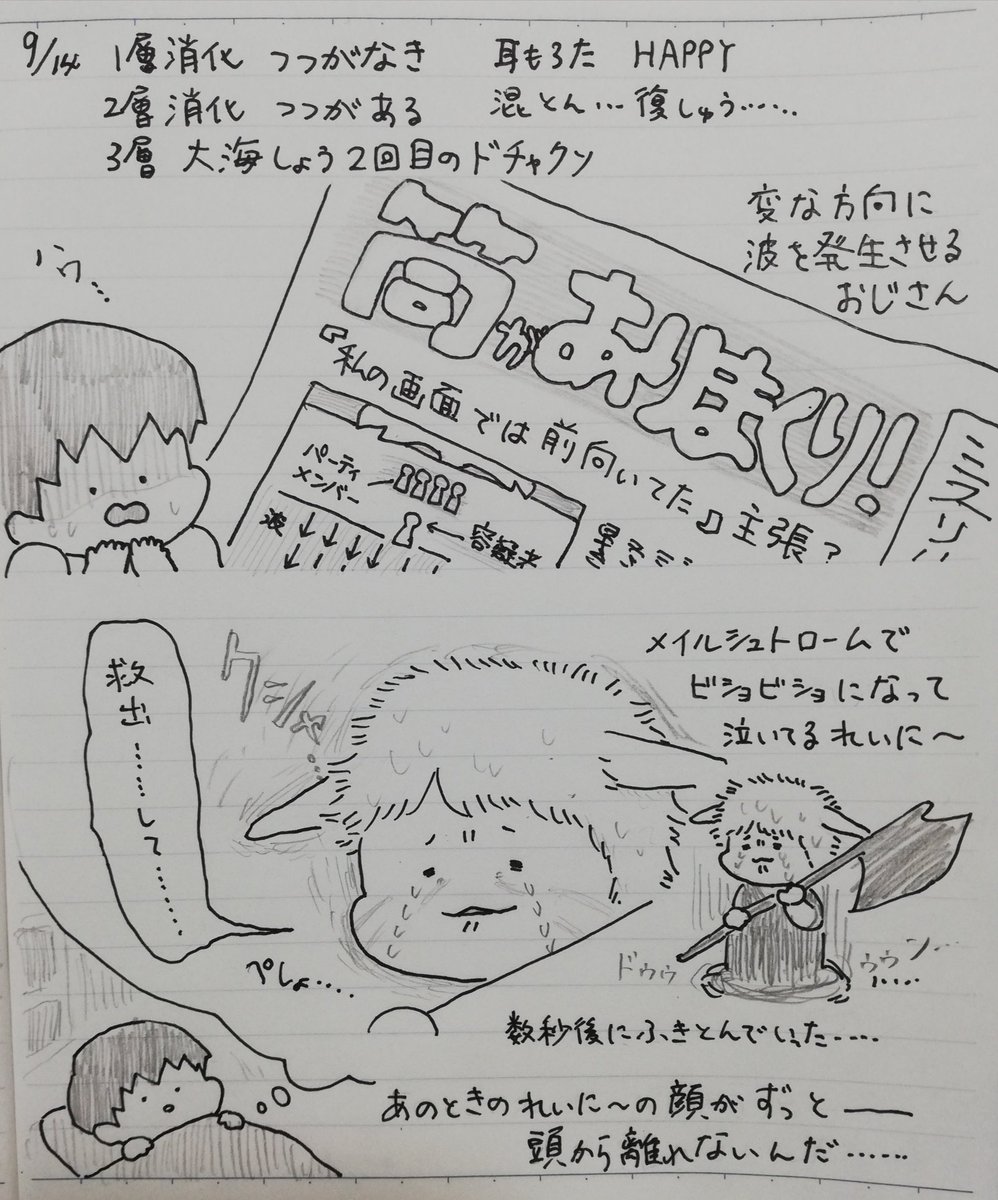 9/14 1層消化 つつがなき 耳もろた HAPPY
2層消化 つつがある 混とん…復しゅう……
3層 大海しょう2回目のドチャクソ
変な方向に
波を発生させる
おじさん
ハワ…
筒がおおまくり!
『私の画面では前向いてた』主張?
ミスリ
パーティ
メンバー
波
容疑者
メイルシュトロームで
ビショビショになって
泣いてるれいに〜
救出………して………
グシャ…
ぺしょ….
ドゥゥ
ゥゥン…
数秒後にふきとんでいった……
あのときのれいに〜の顔がずっと――
頭から離れないんだ……